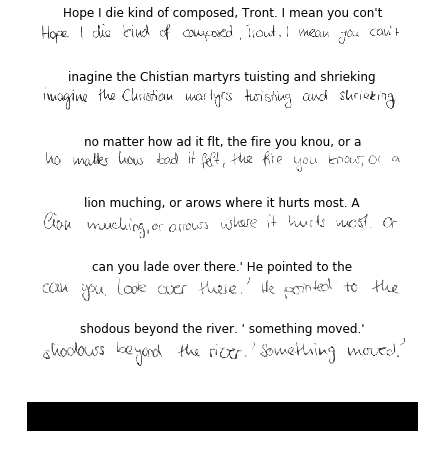 Hope I die kind of composed, Tront. I mean you con't
Hope I die kind of composed, Tront. I mean you can't
inagine the Chistian martyrs tuisting and shrieking
imagine the Christian martyrs twisting and shrieking
no matter how ad it flt, the fire you knou, or a
no matter how bad it felt, the fire you know, or a
lion muching, or arows where it hurts most. A
lion muching, or arrows where it hurts most. Or
can you lade over there.' He pointed to the
can you look over there.' He pointed to the
shodous beyond the river. ' something moved.'
shadows beyond the river. 'Something moved.'